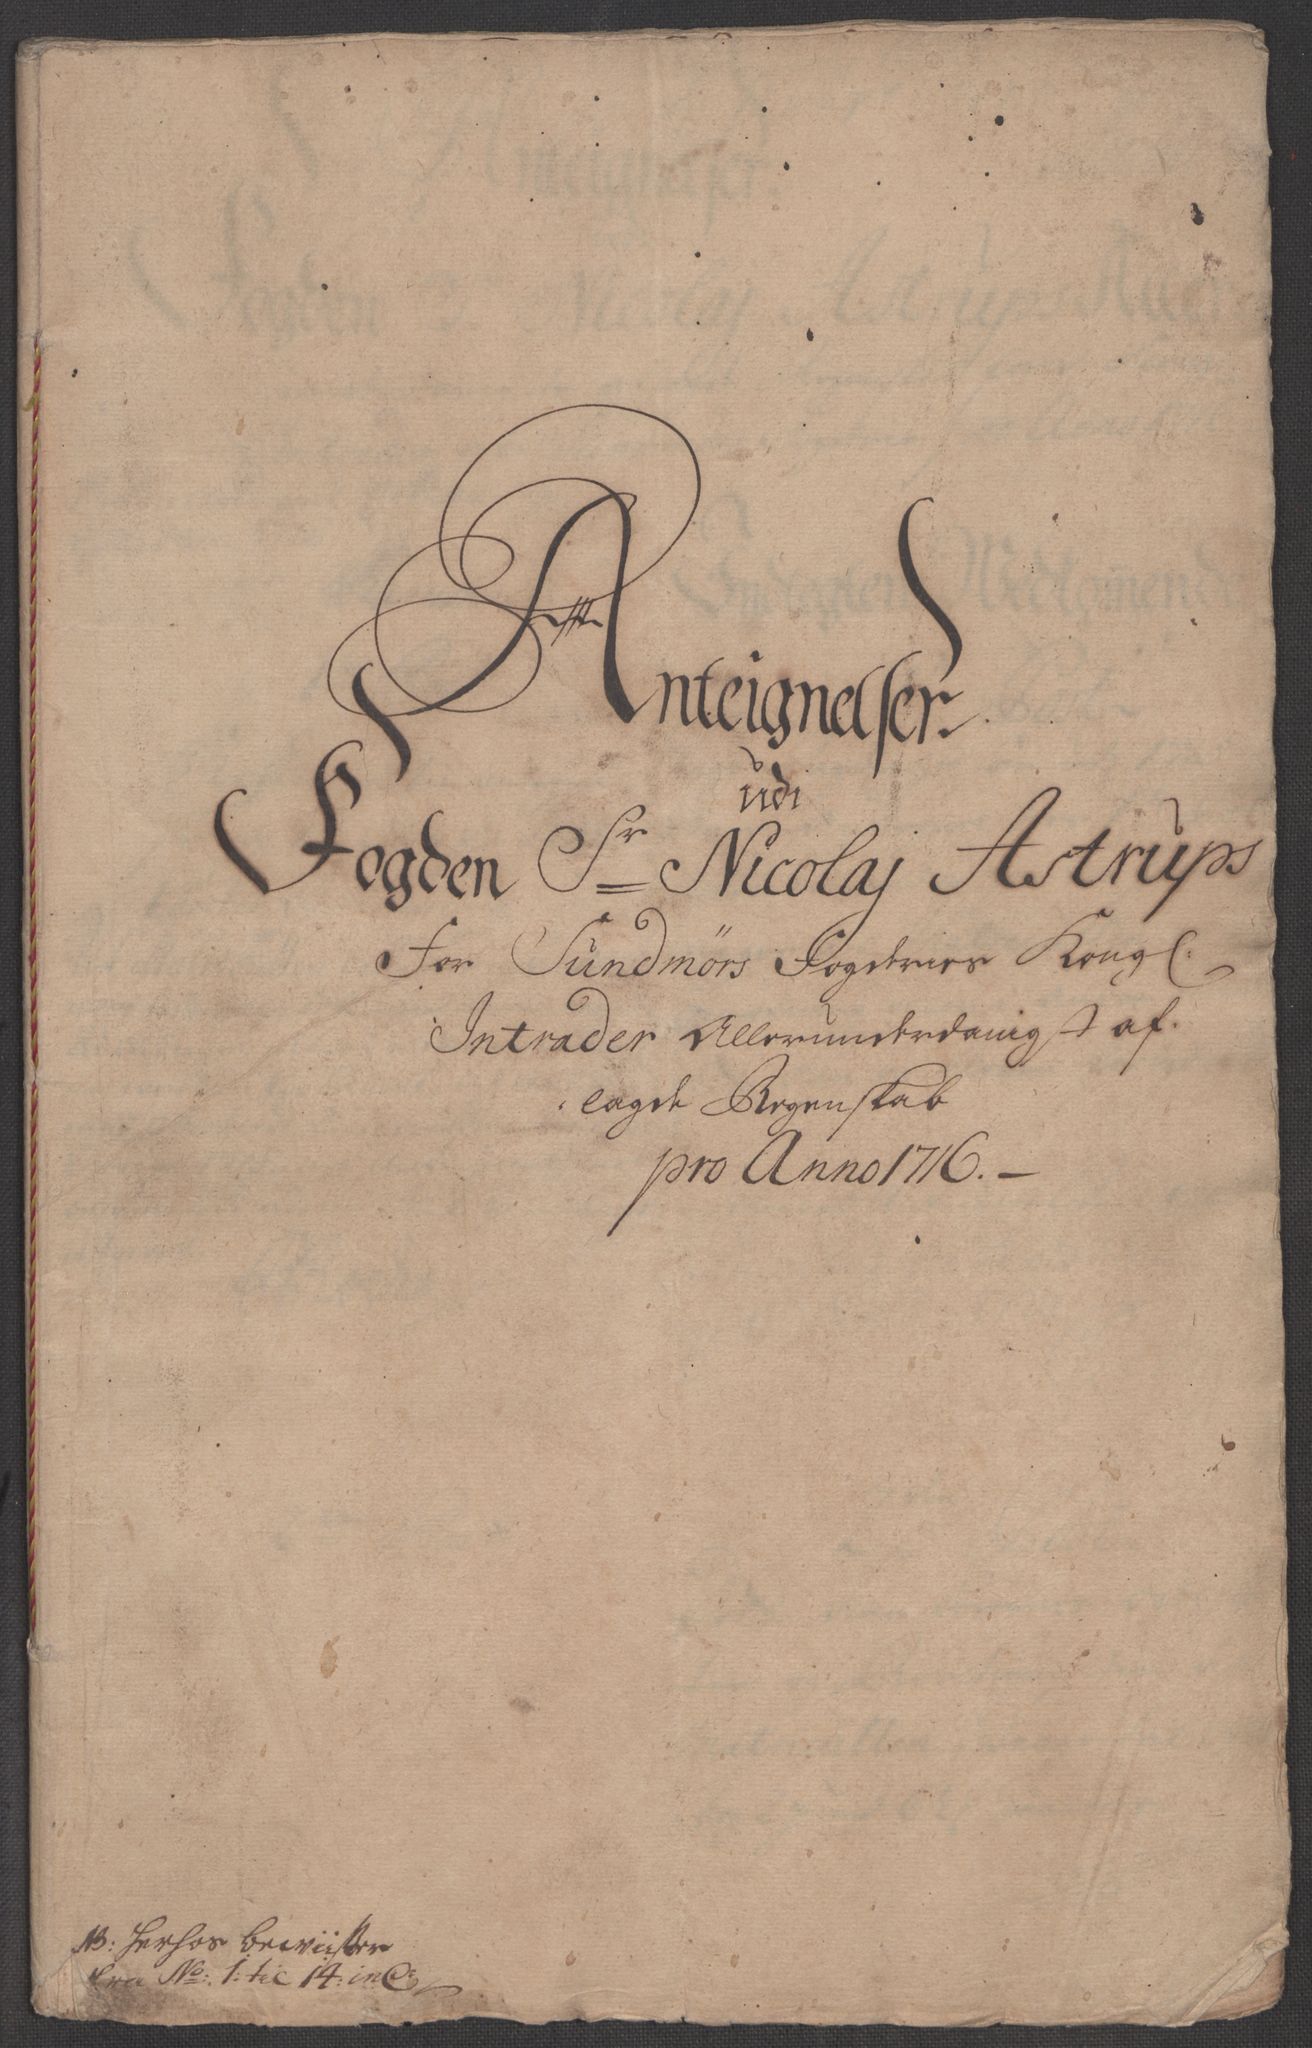 Anteignelser
udi
Fogden Sr Nicolaj Astrups
For Sundmörs Fogderies Kongl:
Intrader Allerunderdanigst af-
lagde Regenskab
pro Anno 1716. —
NB: herhos beviister
fra No: 1: til 14: incl: